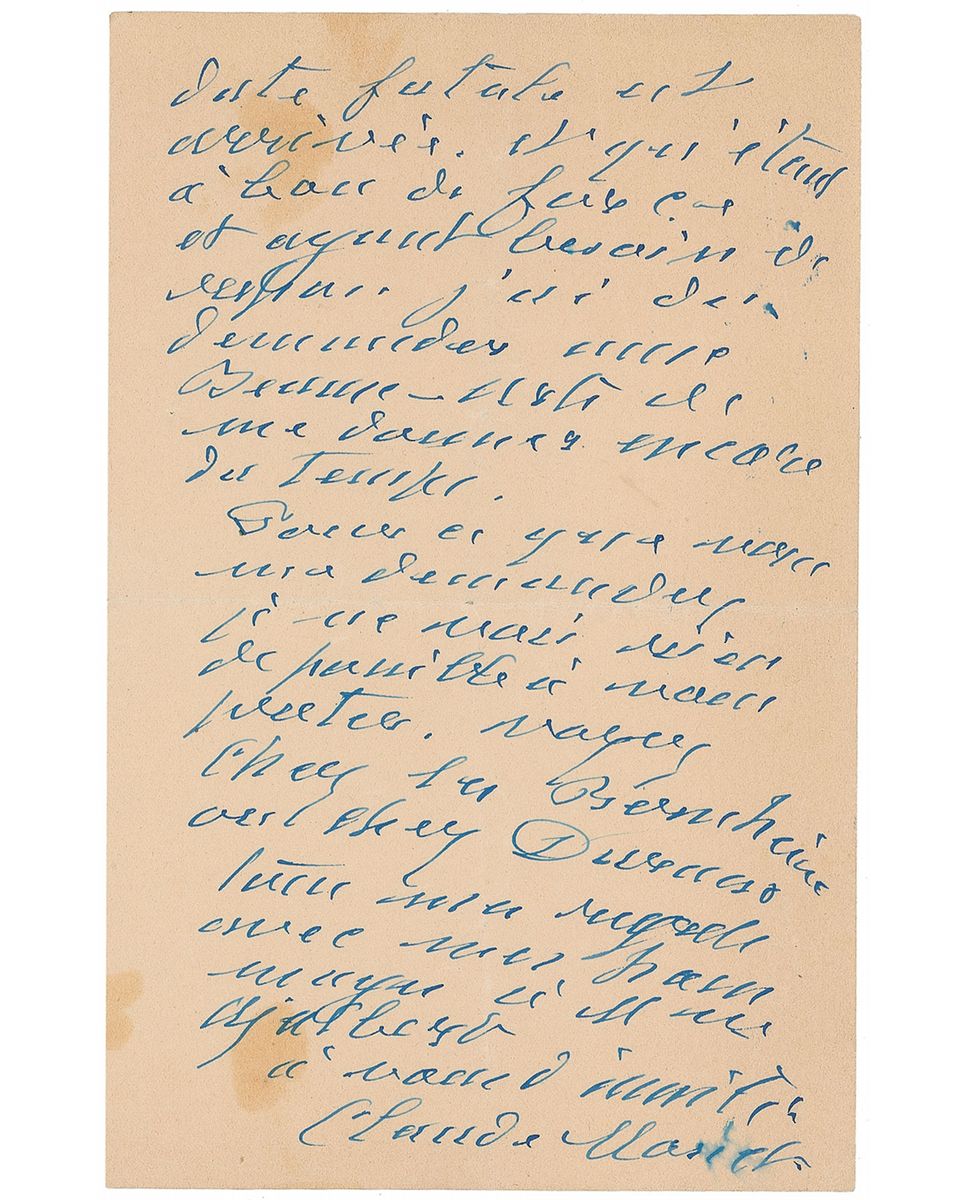 date fatale est
arrivée. et qu'étant
à bout de forces
et ayant besoin de
repos j'ai du
demander aux
Beaux-Arts de
me donner encore
du temps.
Pour ce que vous
me demandez
je ne vois rien
de possible à vous
prêter. voyez
chez les Bernheim
ou chez Durand
tous mes regrets
avec mes hom
mages à Mme
Ajalbert
à vous d'amitié
Claude Monet